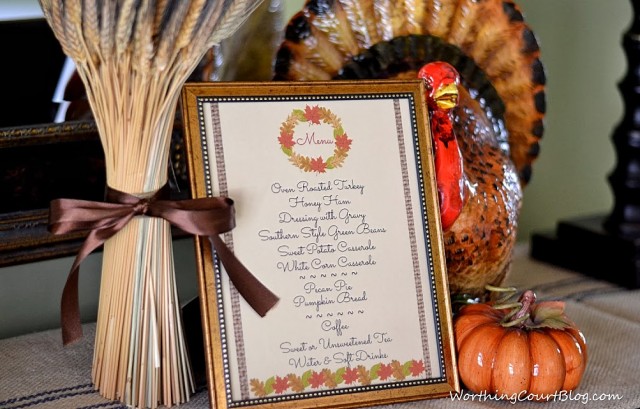 Menu
Oven Roasted Turkey
Honey Ham
Dressing with Gravy
Southern Style Green Beans
Sweet Potato Casserole
White Corn Casserole
~ ~ ~ ~ ~ ~
Pecan Pie
Pumpkin Bread
~ ~ ~ ~ ~
Coffee
Sweet or Unsweetened Tea
Water & Soft Drinks
WorthingCourtBlog.com